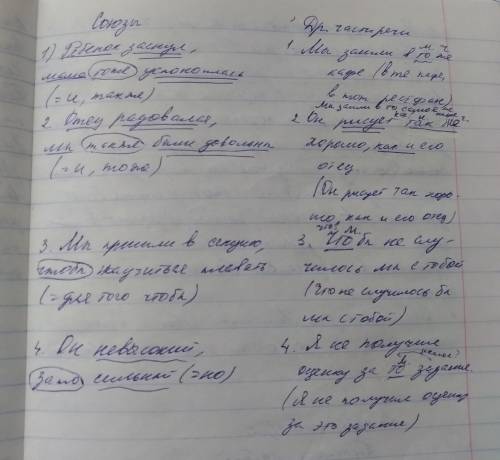 Союзы
1) Ребёнок заснул,
мама тоже успокоилась
(= и, также)
2. Отец радовался,
мы также были довольны
(= и, тоже)
3. Мы пришли в секцию,
чтобы научиться плавать
(= для того чтобы)
4. Он невысокий,
зато сильный (=но)
Др. части речи
1. Мы зашли в то же
м. ч.
кафе (в те же,
в тот ресторан)
Мы зашли в то самое
2 Он рисует так же
хорошо, как и его
отец
(Он рисует так хоро-
шо, как и его отец)
3. Что бы не слу-
м.
чилось мы с тобой
(Что не случилось бы
мы с тобой)
4. Я не получил
оценку за то задание.
м
(Я не получил оценку
за это задание)